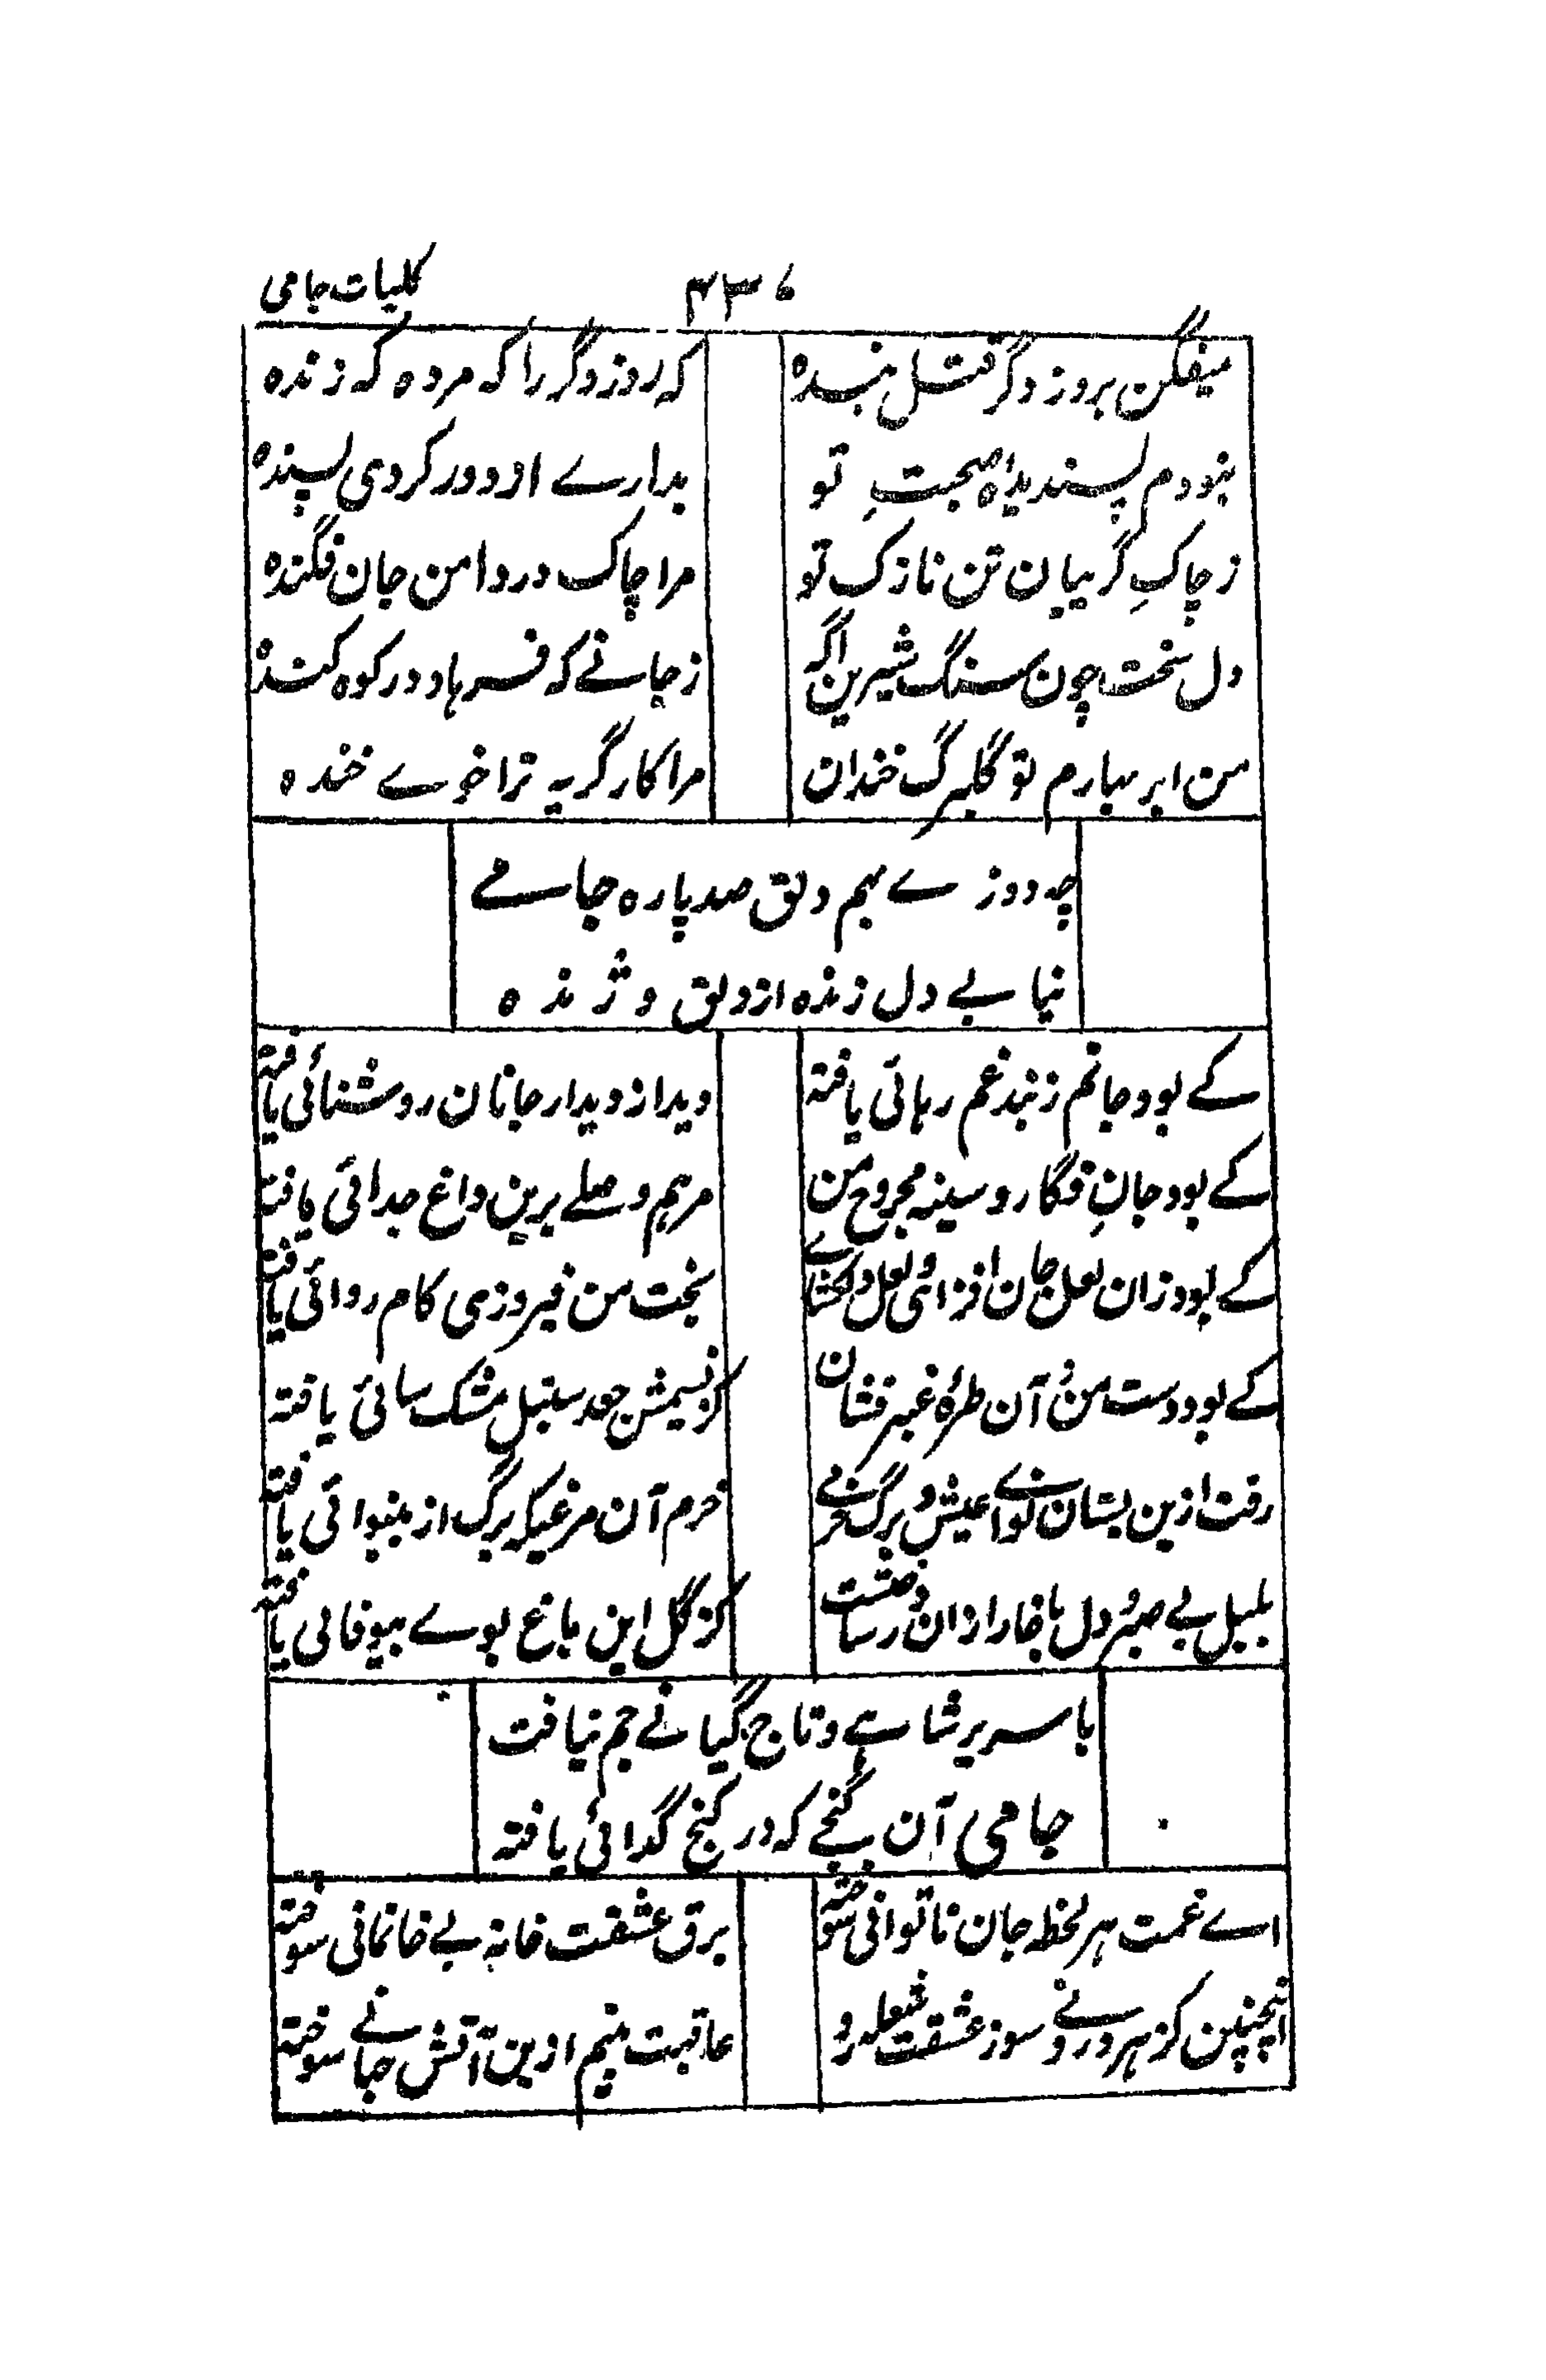 کلیات جامی
۴۳۶
میفگن بروز دگر قتل بنده
که روز دگر را که مرده که زنده
نبودم پسندیدهٔ صحبتِ تو
بدارے از دور کردی پسنده
ز چاکِ گریبان تن نازک تو
مرا چاک در دامن جان فگنده
دل سخت چون سنگ شیرین اگر
ز جانے که فرهاد در کوه کنده
من ابر بهارم تو گلبرگ خندان
مرا کار گریه ترا خوے خنده
چه دوزے بهم دلق صد پاره جامے
نیابے دل زنده از دلق و ژنده
کے بود جانم ز بند غم رہائی یافته
دیده از دیدار جانان روشنائی یافته
کے بود جانِ فگار و سینه مجروح من
مرہم وصلے برین داغ جدائی یافته
کے بود زان لعل جان افزای و لعل دلکشاے
بخت من فیروزی کام روائی یافته
کے بود دست من و آن طرهٔ عنبر فشان
کز نسیمش جعد سنبل مشک سائی یافته
رفت ازین بستان نواے عیش و برگ خرمے
خرم آن مرغیکه برگ از بینوائی یافته
بلبل بے صبر و دل با خار ازان در ساخت
کز گل این باغ بوے بیوفائی یافته
با سریر شاہے و تاج کیانے جم نیافت
جامی آن گنجے که در کنج گدائی یافته
اے غمت ہر لحظه جان ناتوانی سوخته
برق عشقت خانهٔ بے خانمانی سوخته
اینچنین کز ہر درونے سوز عشقت شعله زد
عاقبت بینم ازین آتش جہانے سوخته